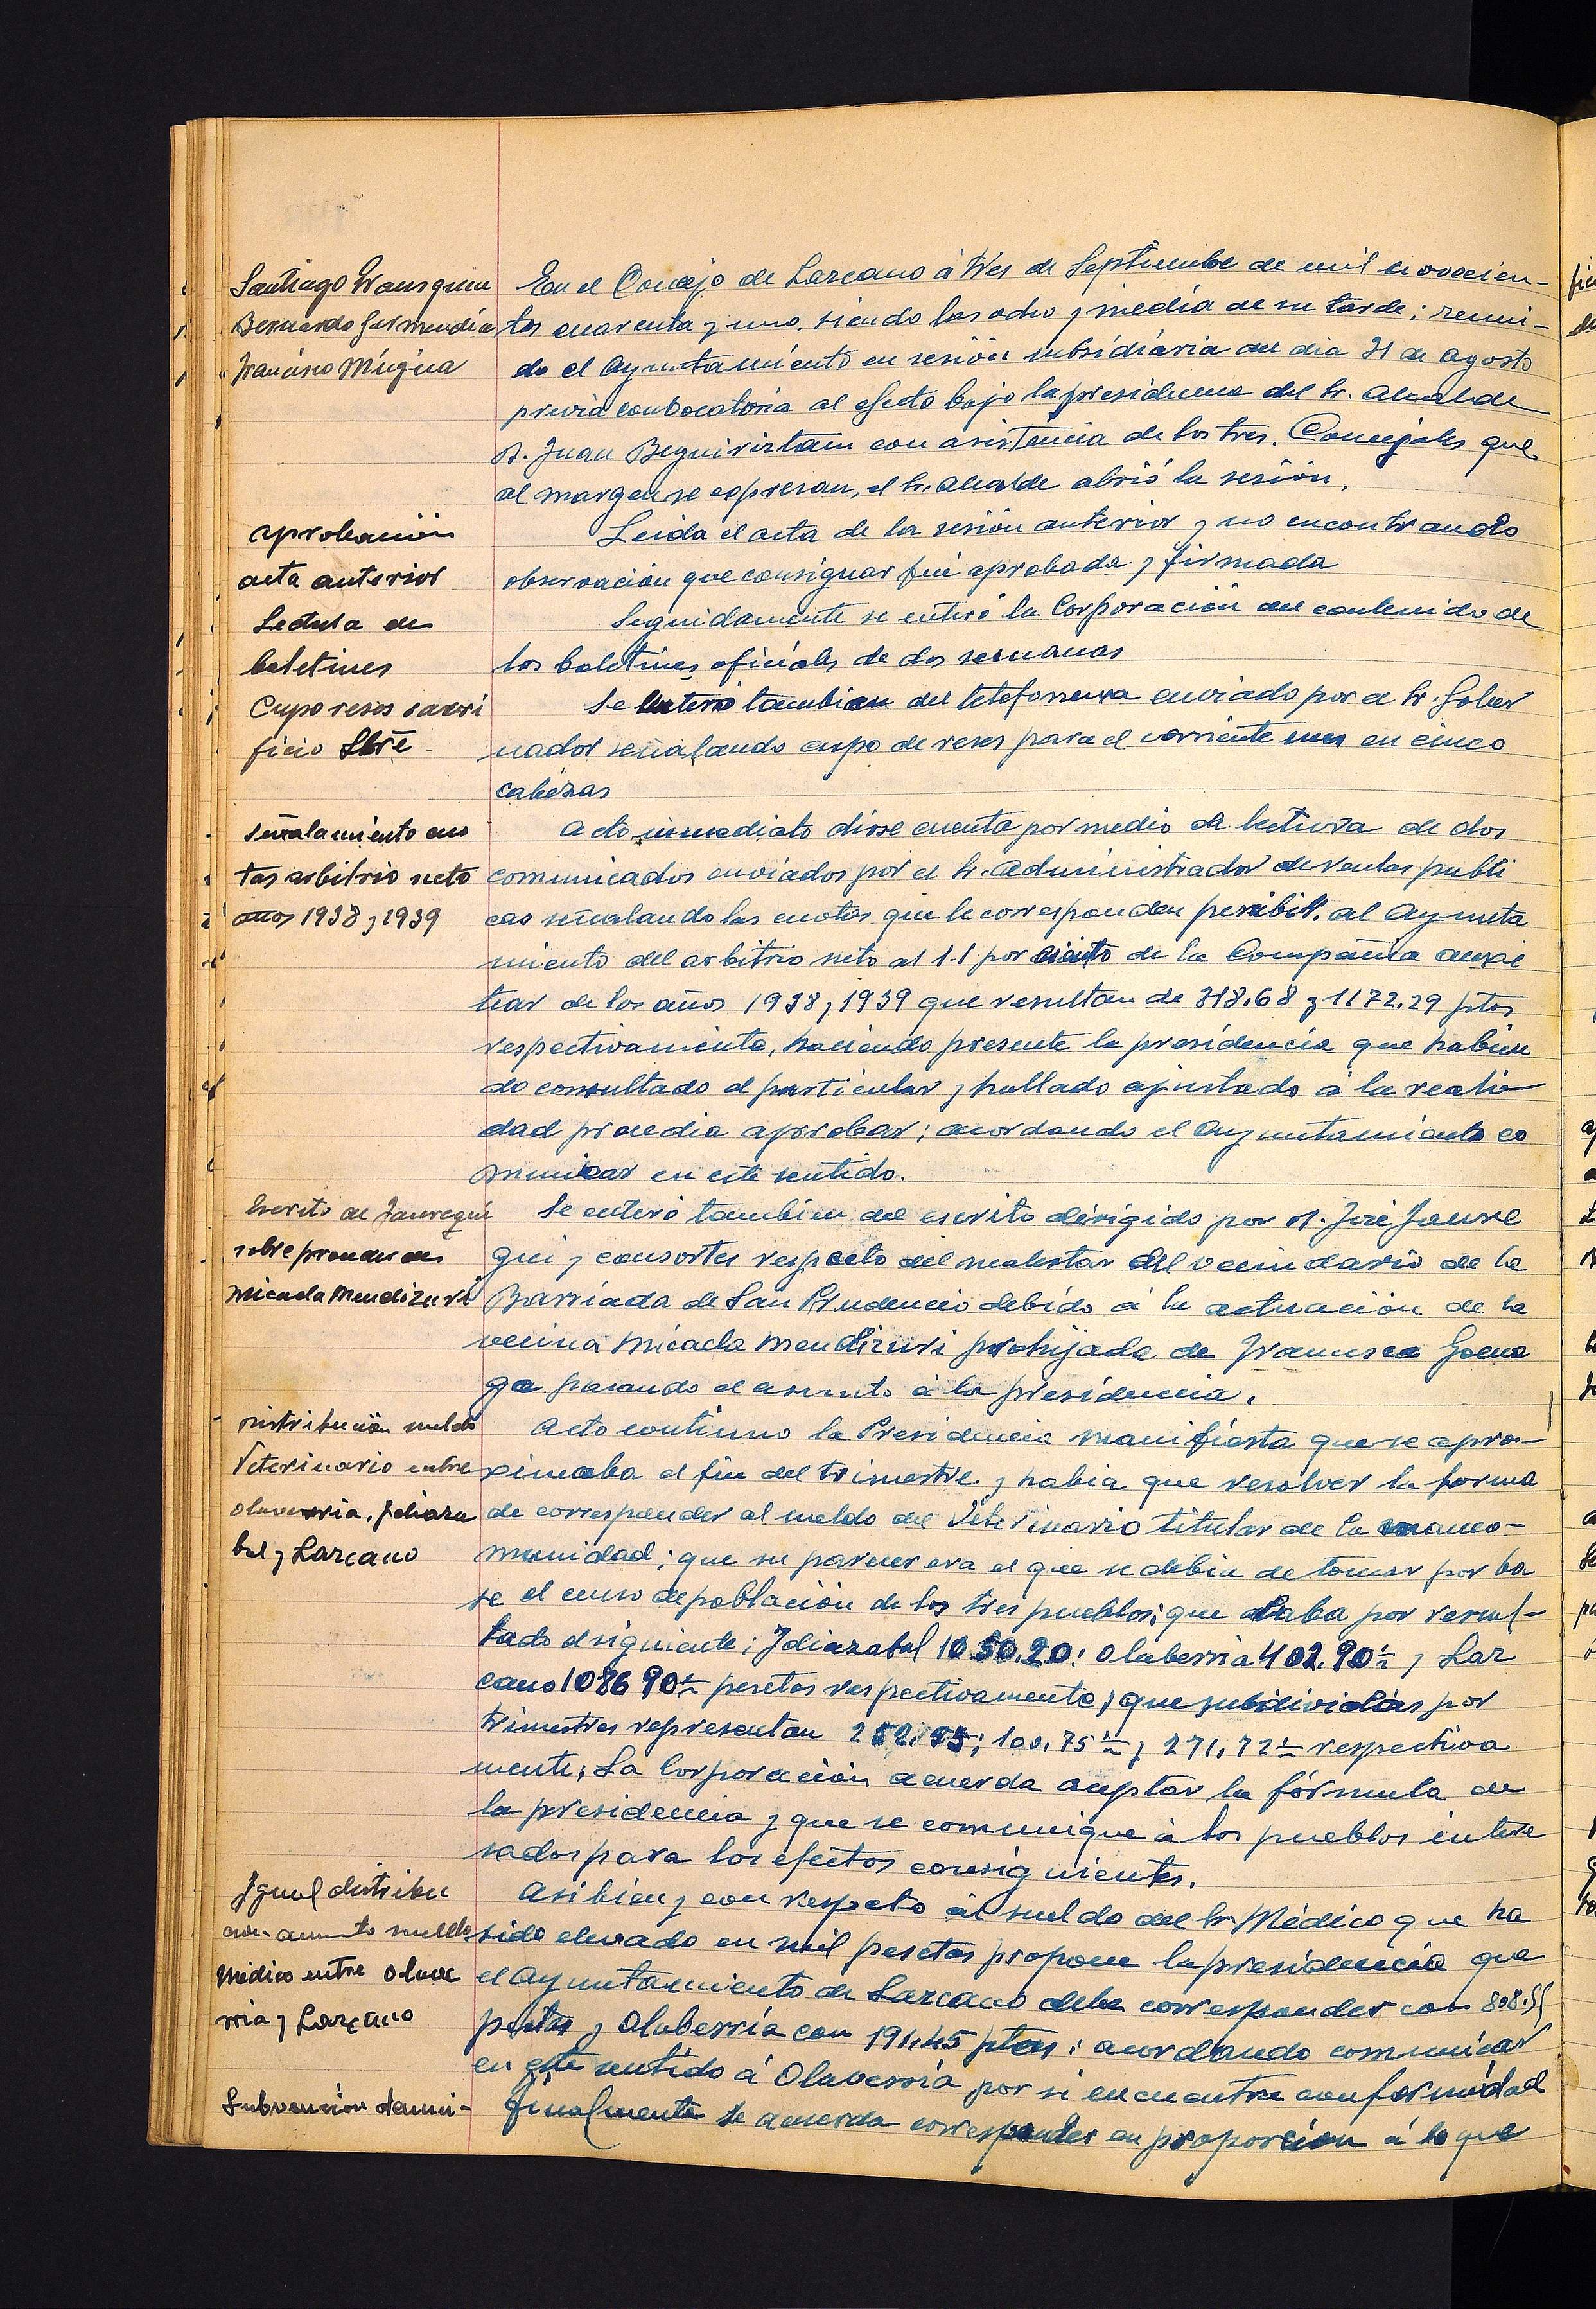 Santiago
Bernardo Garmendia
Francisco Múgica
En el Concejo de Lazcano á tres de Septiembre de mil novecien-
tos cuarenta y uno, siendo las ocho y media de su tarde; reuni-
do el Ayuntamiento en sesión subsidiaria del dia 31 de agosto
previa convocatoria al efecto bajo la presidencia del Sr. Alcalde
D. Juan Beguiristain con asistencia de los tres Concejales que
al margen se expresan, el Sr. Alcalde abrió la sesión.
aprobación
acta anterior
Leida el acta de la sesión anterior y no encontrando
observación que consignar fué aprobada y firmada
Lectura de
boletines
Seguidamente se enteró la Corporación del contenido de
los boletines oficiales de dos semanas
Cupo reses sacri
ficio Sbre
Se enteró tambien del telefonema enviado por el Sr. Gober
nador señalando cupo de reses para el corriente mes en cinco
cabezas
señalamiento cuo
tas arbitrio neto
años 1938 y 1939
Acto inmediato diose cuenta por medio de lectura de dos
comunicados enviados por el Sr. Administrador de rentas publi
cas señalando las cuotas que le corresponden percibir al Ayunta
miento del arbitrio neto al 1.1 por ciento de la Compañia auxi
liar de los años 1938 y 1939 que resultan de 318.68 y 1172.29 ptas
respectivamente, haciendo presente la presidencia que habien
do consultado el particular y hallado ajustado á la reali
dad procedia aprobar; acordando el Ayuntamiento co
municar en este sentido.
Escrito de Jauregui
sobre proceder de
Micaela Mendizuri
Se enteró tambien del escrito dirigido por D. José Jaure
gui y consortes respecto del malestar del vecindario de la
Barriada de San Prudencio debido á la actuación de la
vecina Micaela Mendizuri prohijada de Francisca Goena
ga pasando el asunto á la presidencia.
Distribución sueldo
Veterinario entre
Olaverria, Idiaza
bal y Lazcano
Acto continuo la Presidencia manifiesta que se apro-
ximaba el fin del trimestre y habia que resolver la forma
de corresponder al sueldo del Veterinario titular de la manco-
munidad; que su parecer era el que se debia de tomar por ba
se el censo de población de los tres pueblos; que daba por resul-
tado el siguiente; Idiazabal 1050.20: Olaberria 402.90 y Laz
cano 1086 90 pesetas respectivamente; que subdivididas por
trimestres representan 252.95; 100.75 y 271.72 respectiva
mente; La Corporación acuerda aceptar la fórmula de
la presidencia y que se comunique á los pueblos intere
sados para los efectos consiguientes.
Igual distribu
cion aumento sueldo
Médico entre Olave
rria y Lazcano
Asi bien y con respecto al sueldo del Sr. Médico que ha
sido elevado en mil pesetas propone la presidencia que
el Ayuntamiento de Lazcano debe corresponder con 808.55
pesetas y Olaberria con 191.45 ptas; acordando comunicar
en este sentido á Olaverria por si encuentra conformidad
Subvención
Finalmente se acuerda corresponder en proporción á lo que